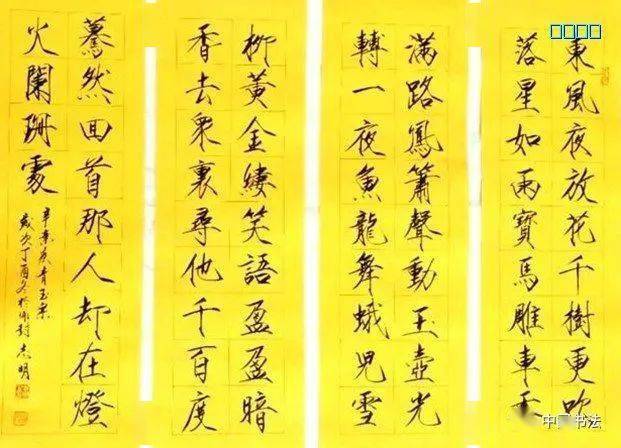 東風夜放花千樹更吹
落星如雨寶馬雕車
滿路鳳簫聲動玉壺光
轉一夜魚龍舞蛾兒雪
柳黃金縷笑語盈盈暗
香去衆裏尋他千百度
驀然回首那人却在燈
火闌珊處
辛棄疾青玉案
歲次丁酉冬於 志明
中国书法